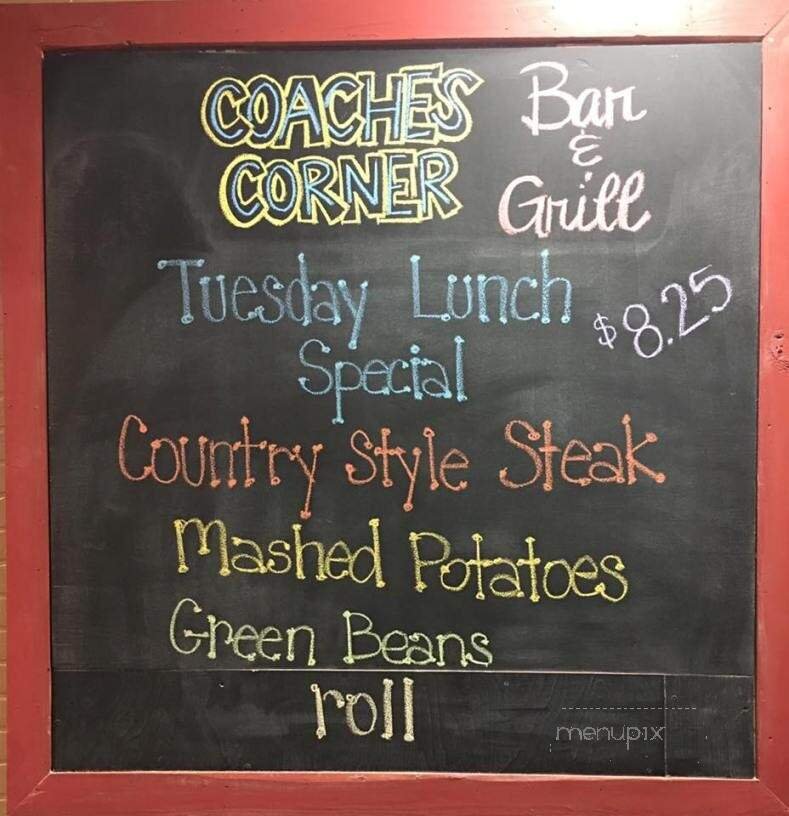 COACHES Bar
&
CORNER Grill
Tuesday Lunch
$8.25
Special
Country Style Steak
Mashed Potatoes
Green Beans
roll
menupix